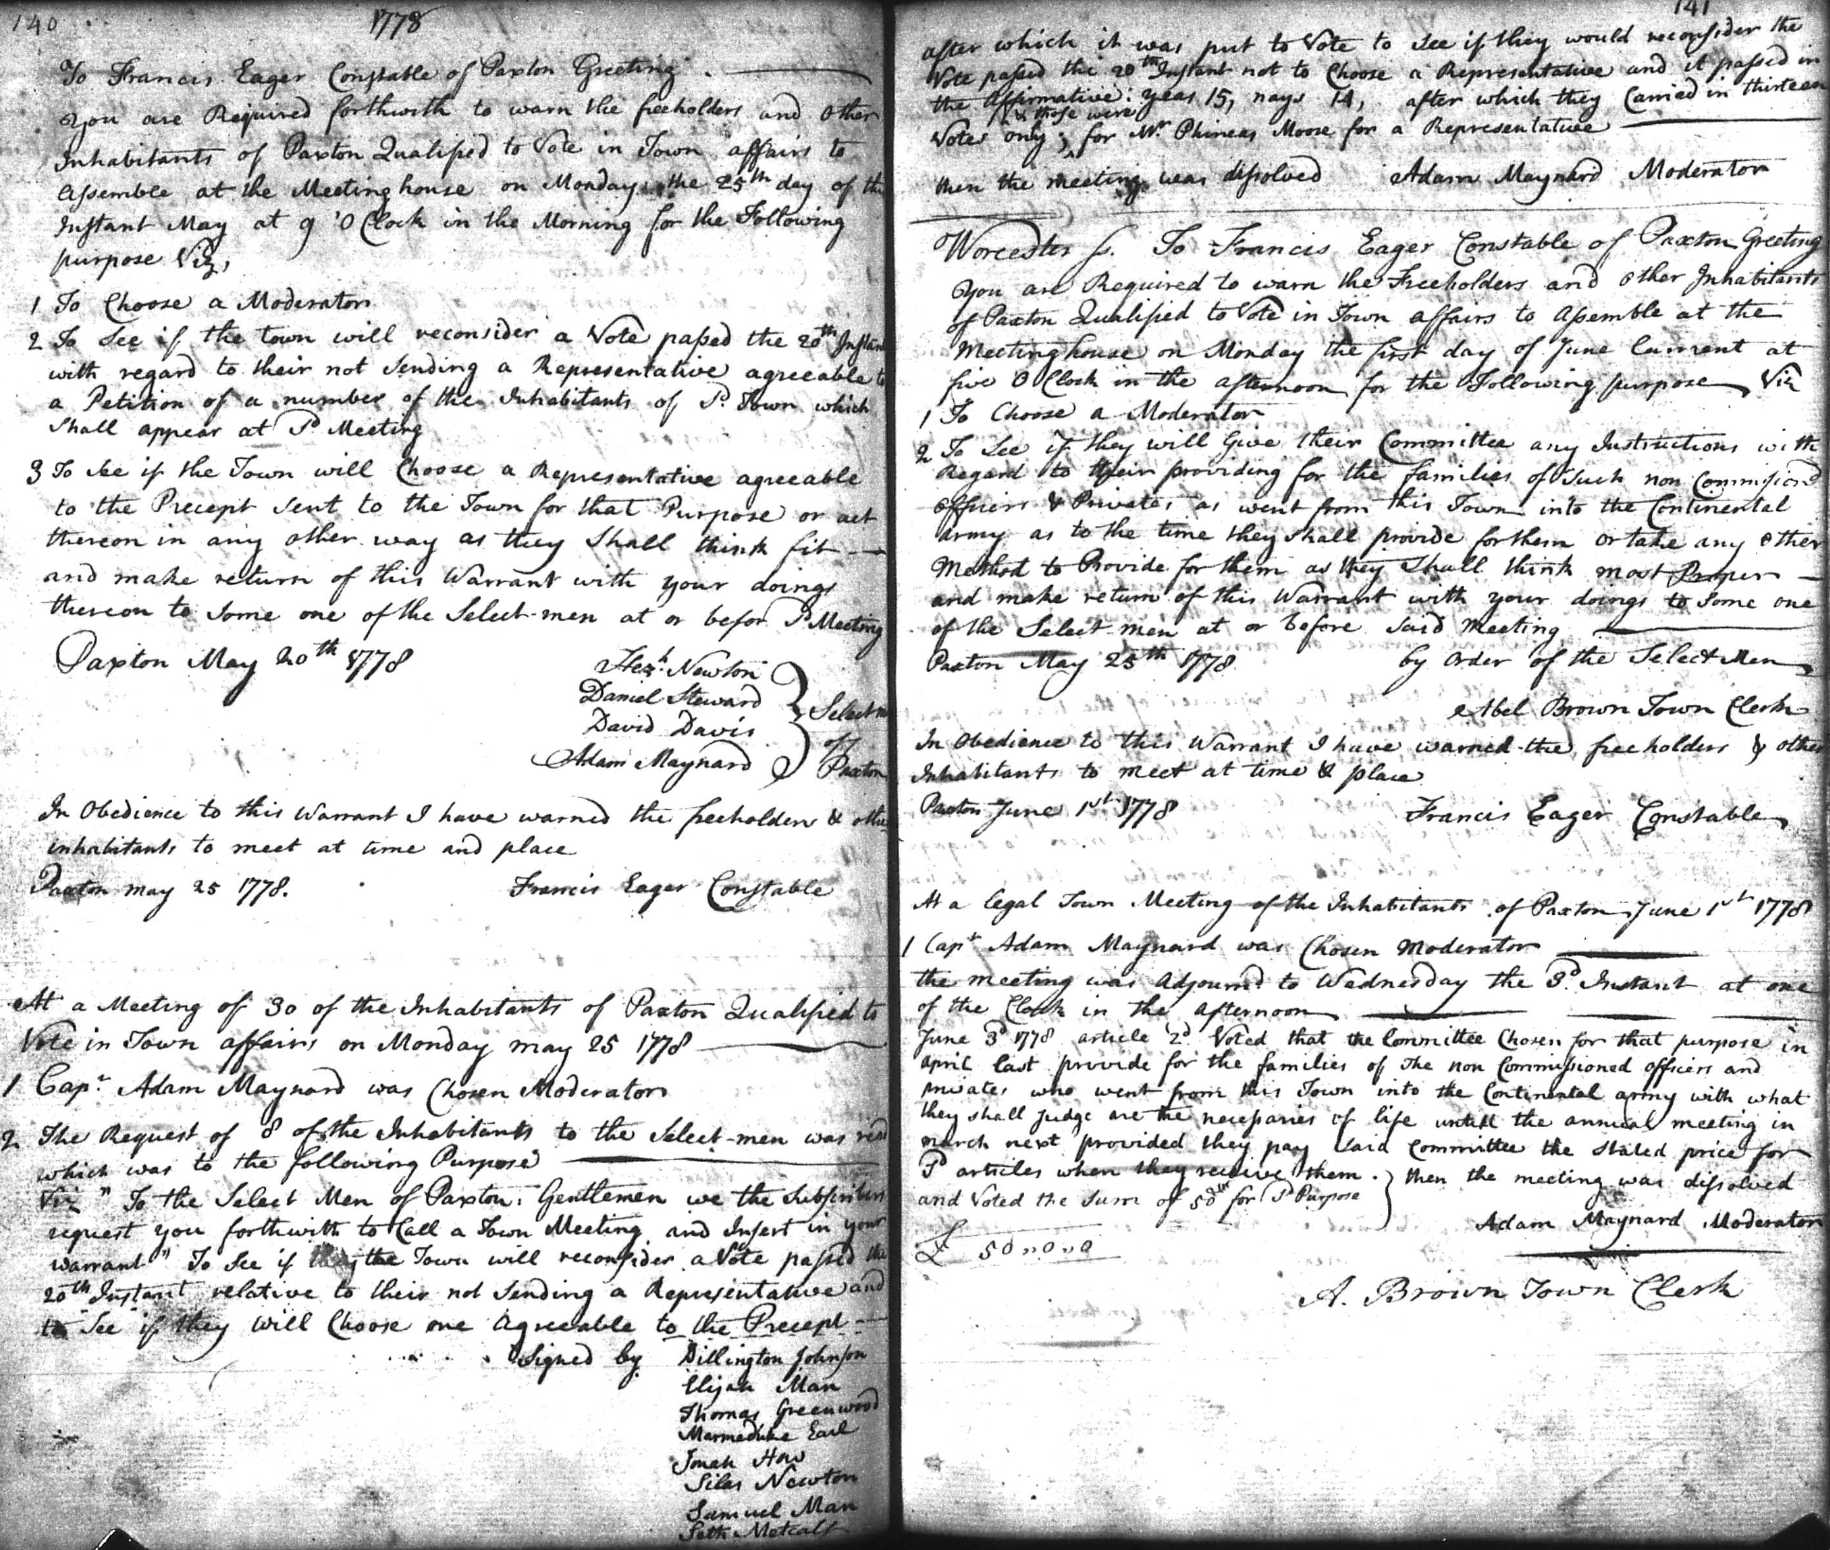 140
1778
To Francis Eager Constable of Paxton Greeting.
You are Required forthwith to warn the freeholders and other
Inhabitants of Paxton Qualified to Vote in Town affairs to
Assemble at the Meeting house on Monday the 25th day of the
Instant May at 9 'O Clock in the Morning for the Following
purpose Viz,
1 To Choose a Moderator
2 To See if the town will reconsider a Vote passed the 20th Instant
with regard to their not Sending a Representative agreeable to
a Petition of a number of the Inhabitants of Sd. Town which
Shall appear at Sd Meeting
3 To see if the Town will Choose a Representative agreeable
to the Precept sent to the Town for that Purpose or act
thereon in any other way as they Shall think fit —
and make return of this Warrant with your doings
thereon to Some one of the Select-men at or befor Sd Meeting
Paxton May 20th 1778
Hezh. Newton
Daniel Steward
David Davis
Adam Maynard
Select
of
Paxton
In Obedience to this Warrant I have warned the freeholders & other
inhabitants to meet at time and place
Paxton may 25 1778. Francis Eager Constable
At a Meeting of 30 of the Inhabitants of Paxton Qualified to
Vote in Town affairs on Monday may 25 1778
1 Capt. Adam Maynard was Chosen Moderator
2 The Request of 8 of the Inhabitants to the Select-men was read
which was to the following Purpose
Viz " To the Select Men of Paxton: Gentlemen we the Subscribers
request you forthwith to Call a Town Meeting and Insert in your
warrant " To See if the Town will reconsider a Vote passed the
20th Instant relative to their not Sending a Representative and
to See if they will Choose one Agreeable to the Precept —
Signed by Dillington Johnson
Elijah Man
Thomas Greenwood
Marmeduke Earl
Jonah How
Silas Newton
Samuel Man
Seth Metcalf
141
after which it was put to Vote to see if they would reconsider the
Vote passed the 20th Instant not to Choose a Representative and it passed in
the Affirmative: yeas 15, nays 14, after which they Carried in thirteen
& those were
Votes only; for Mr. Phineas Moore for a Representative
then the meeting was dissolved Adam Maynard Moderator
Worcester ss. To Francis Eager Constable of Paxton Greeting
You are Required to warn the Freeholders and other Inhabitants
of Paxton Qualified to Vote in Town affairs to Assemble at the
Meeting house on Monday the first day of June Current at
five O Clock in the afternoon for the Following purpose Viz
1 To Choose a Moderator
2 To See if they will Give their Committee any Instructions with
Regard to their providing for the families of Such non Commissiond
Officers & Privates as went from this Town into the Continental
army as to the time they shall provide for them or take any other
Method to Provide for them as they Shall think most Proper —
and make return of this Warrant with your doings to Some one
of the Select men at or before said Meeting
Paxton May 25th 1778 by Order of the Select Men
Abel Brown Town Clerk
In Obedience to this Warrant I have warned the freeholders & other
Inhabitants to meet at time & place
Paxton June 1st 1778 Francis Eager Constable
At a legal Town Meeting of the Inhabitants of Paxton June 1st 1778
1 Capt Adam Maynard was Chosen Moderator
the meeting was Adjournd to Wednesday the 3d. Instant at one
of the Clock in the afternoon
June 3d 1778 article 2d Voted that the Committee Chosen for that purpose in
April last provide for the families of the non Commissioned officers and
privates who went from this Town into the Continental army with what
they shall Judge are the necessaries of life untill the annual meeting in
march next provided they pay said Committee the Stated price for
Sd articles when they receive them. then the meeting was dissolved
and Voted the Sum of 50 for Sd Purpose
Adam Maynard Moderator
£ 50 " 0 " 0
A. Brown Town Clerk